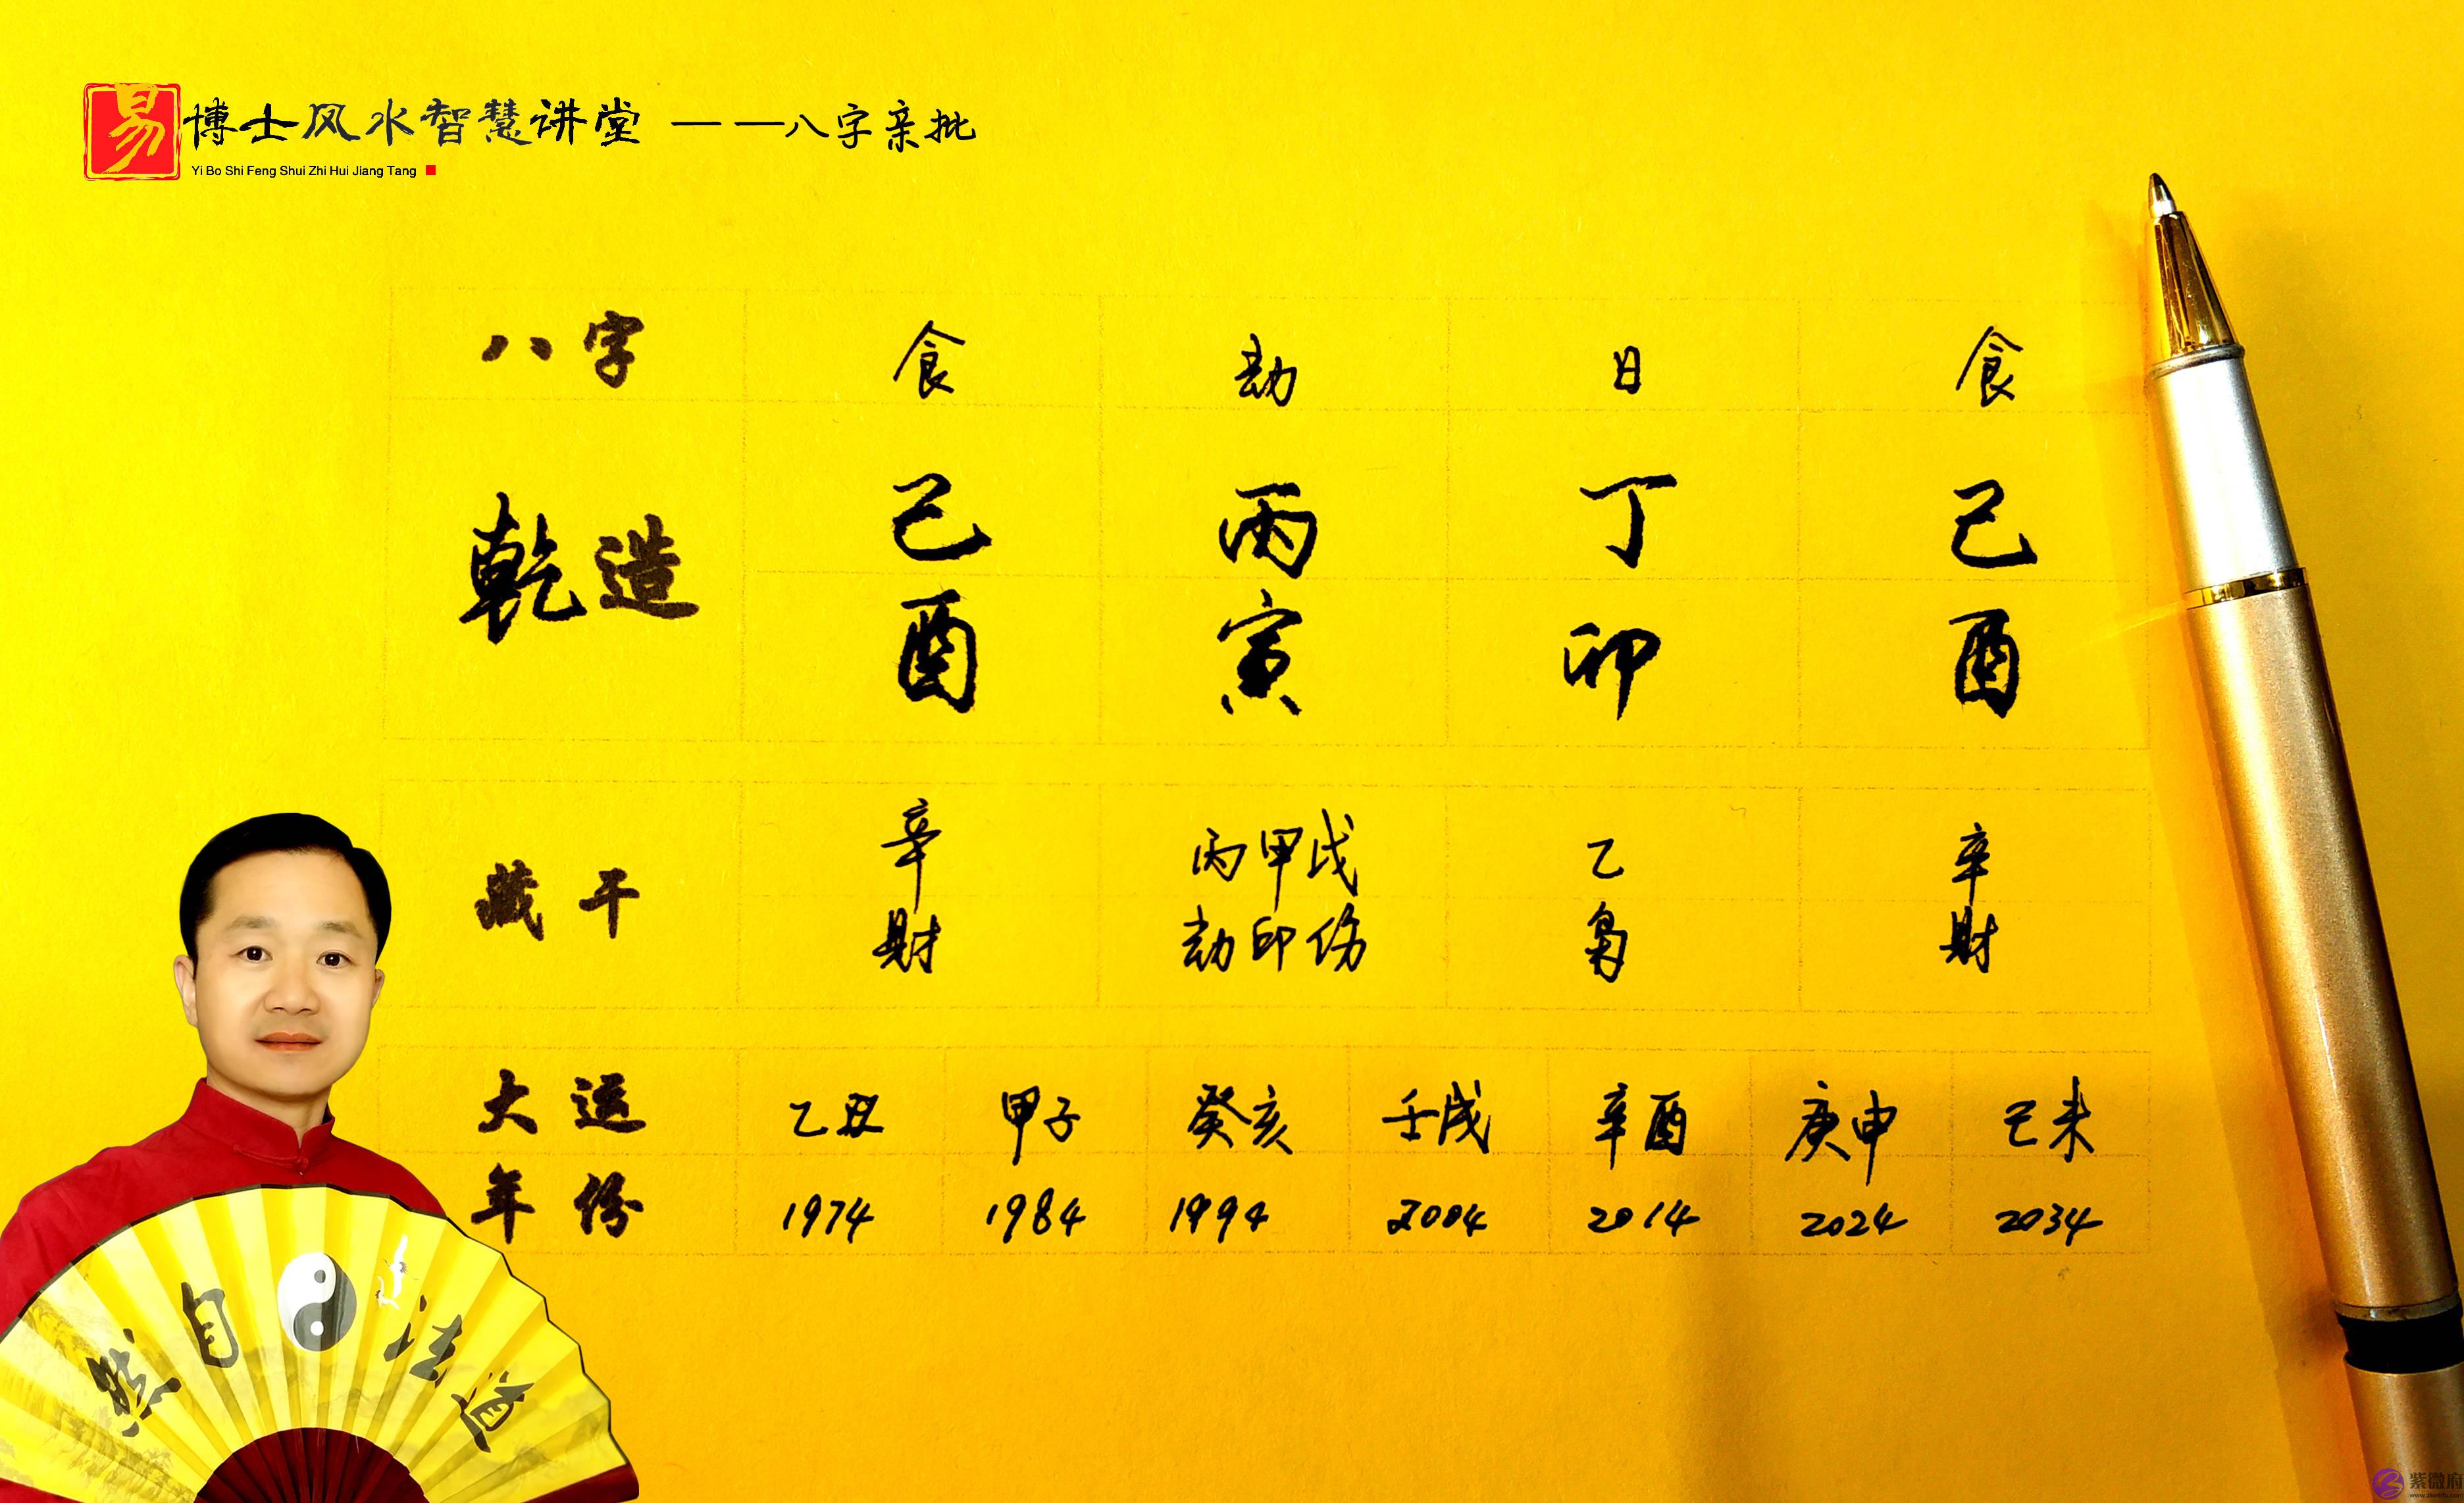 易博士风水智慧讲堂 ——八字亲批
Yi Bo Shi Feng Shui Zhi Hui Jiang Tang
八字 食 劫 日 食
乾造 己 丙 丁 己
酉 寅 卯 酉
藏干 辛 丙甲戊 乙 辛
财 劫印伤 枭 财
大运 乙丑 甲子 癸亥 壬戌 辛酉 庚申 己未
年份 1974 1984 1994 2004 2014 2024 2034
然自法道
紫微府